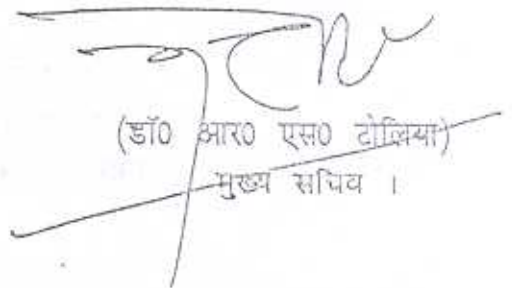 (डॉ0 आर0 एस0 टोलिया)
मुख्य सचिव ।